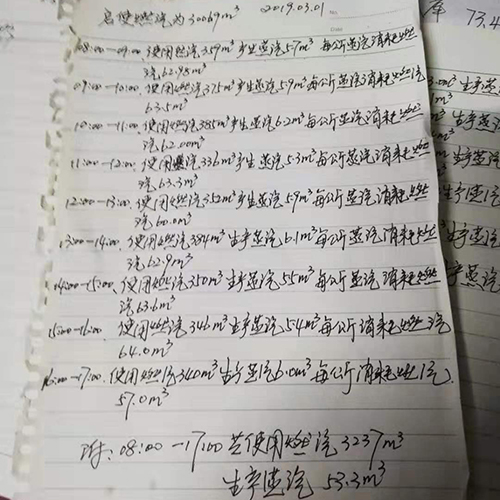 启使燃汽为30069m³ 2019.03.01
08:00-09:00 使用燃汽359m³产生蒸汽5.7m³每公斤蒸汽消耗燃
汽62.98m³
09:00-10:00 使用燃汽375m³产生蒸汽5.9m³每公斤蒸汽消耗燃汽
63.5m³
10:00-11:00 使用燃汽385m³产生蒸汽6.2m³每公斤蒸汽消耗燃
汽62.00m³
11:00-12:00 使用燃汽336m³产生蒸汽5.3m³每公斤蒸汽消耗燃
汽63.3m³
12:00-13:00 使用燃汽352m³产生蒸汽5.9m³每公斤蒸汽消耗燃
汽60.0m³
13:00-14:00 使用燃汽384m³生产蒸汽6.1m³每公斤蒸汽消耗燃
汽62.9m³
14:00-15:00 使用燃汽350m³生产蒸汽5.5m³每公斤蒸汽消耗燃
汽63.6m³
15:00-16:00 使用燃汽346m³生产蒸汽5.4m³每公斤消耗燃汽
64.0m³
16:00-17:00 使用燃汽340m³生产蒸汽6.0m³每公斤消耗燃汽
57.0m³
08:00-17:00共使用燃汽3237m³
生产蒸汽 53.3m³
73.4